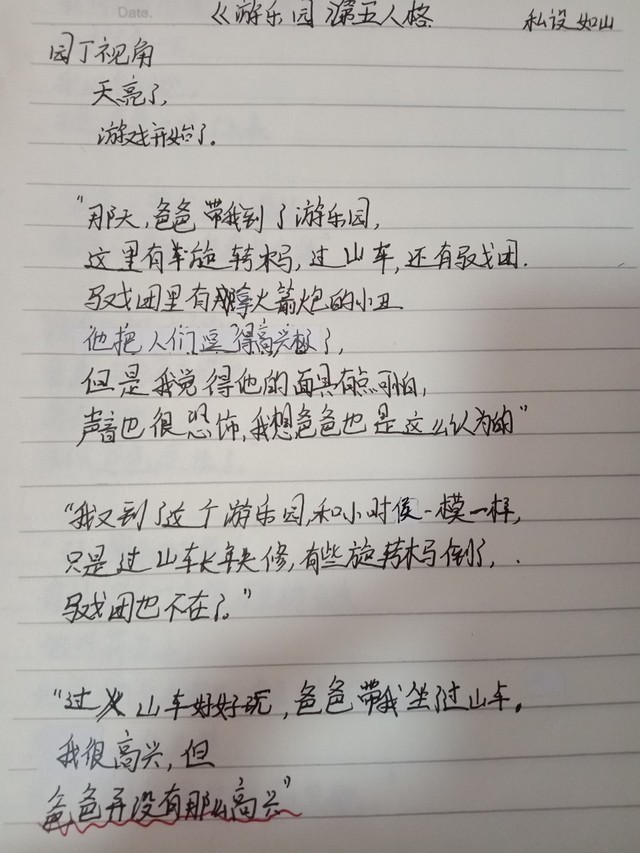 Date.
《游乐园 第五人格
私设如山
园丁视角
天亮了,
游戏开始了。
"那天,爸爸带我到了游乐园,
这里有旋转木马,过山车,还有马戏团.
马戏团里有拿火箭炮的小丑
他把人们逗得高兴极了,
但是我觉得他的面具有点可怕,
声音也很恐怖,我想爸爸也是这么认为的"
"我又到了这个游乐园,和小时侯一模一样,
只是过山车长年失修,有些旋转木马倒了,.
马戏团也不在了。"
"过山车好好玩,爸爸带我坐了过山车。
我很高兴,但
爸爸并没有那么高兴"